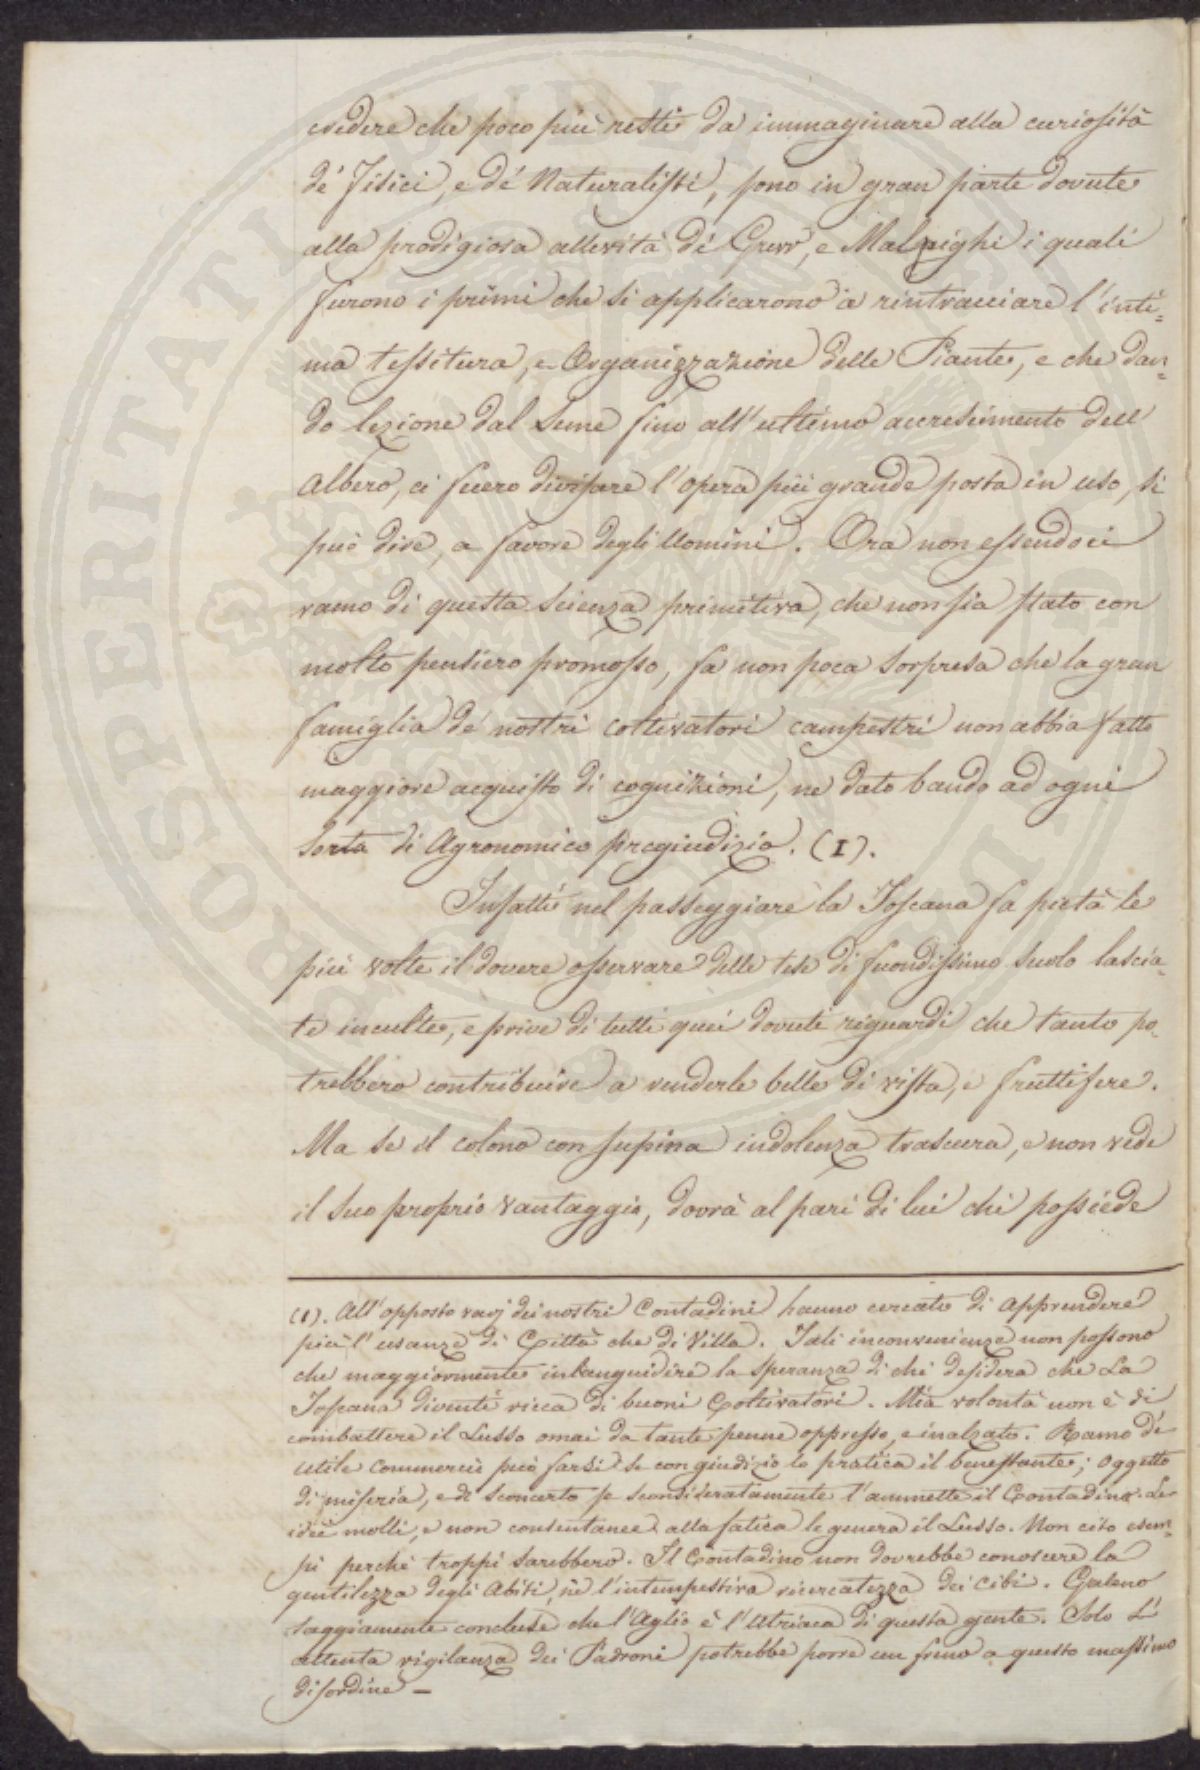 credere che poco più resti da immaginare alla curiosità
de' Fisici, e de' Naturalisti, sono in gran parte dovute
alla prodigiosa attività de' Grew, e Malpighi i quali
furono i primi che si applicarono a rintracciare l'inti=
ma tessitura, e Organizzazione delle Piante, e che dan=
do lezione dal Seme fino all'ultimo accrescimento dell'
Albero, ci fecero divisare l'opera più grande posta in uso, si
può dire, a favore degli Uomini. Ora non essendoci
ramo di questa scienza primitiva, che non sia stato con
molto pensiero promosso, fa non poca sorpresa che la gran
famiglia de' nostri coltivatori campestri non abbia fatto
maggiore acquisto di cognizioni, ne dato bando ad ogni
sorta di Agronomico pregiudizio. (1).
Infatti nel passeggiare la Toscana fa pietà le
più volte il dovere osservare delle tese di fecondissimo suolo lascia-
te inculte, e prive di tutti quei dovuti riguardi che tanto po-
trebbero contribuire a renderle belle di vista, e fruttifere.
Ma se il colono con supina indolenza trascura, e non vede
il suo proprio vantaggio, dovrà al pari di lui chi possiede
(1). All'opposto varj dei nostri Contadini hanno cercato di apprendere
più l'usanze di Città che di Villa. Tali inconvenienze non possono
che maggiormente inlanguidire la speranza di chi desidera che La
Toscana diventi ricca di buoni Coltivatori. Mia volontà non è di
combattere il Lusso omai da tante penne oppresso, e inalzato. Ramo di
utile commercio può farsi se con giudizio lo pratica il benestante; oggetto
di miseria, e di sconcerto se sconsideratamente l'ammette il Contadino. Le
idee molli, e non consentanee alla fatica le genera il Lusso. Non cito esem=
pi perchè troppi sarebbero. Il Contadino non dovrebbe conoscere la
gentilezza degli Abiti, nè l'intempestiva ricercatezza dei cibi. Galeno
saggiamente conclude che l'Aglio è l'Utriaca di questa gente. Solo L'
attenta vigilanza dei Padroni potrebbe porre un freno a questo massimo
disordine —
PROSPERITATI PUBLICAE